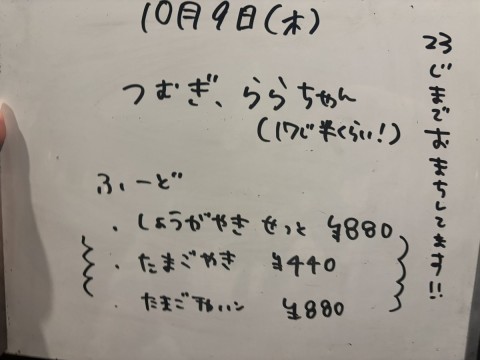 10月9日(木)
つむぎ、ららちゃん
(17じ半くらい!)
ふーど
・しょうがやき せっと ¥880
・たまごやき ¥440
・たまご ¥880
23じまでおまちしてます!!